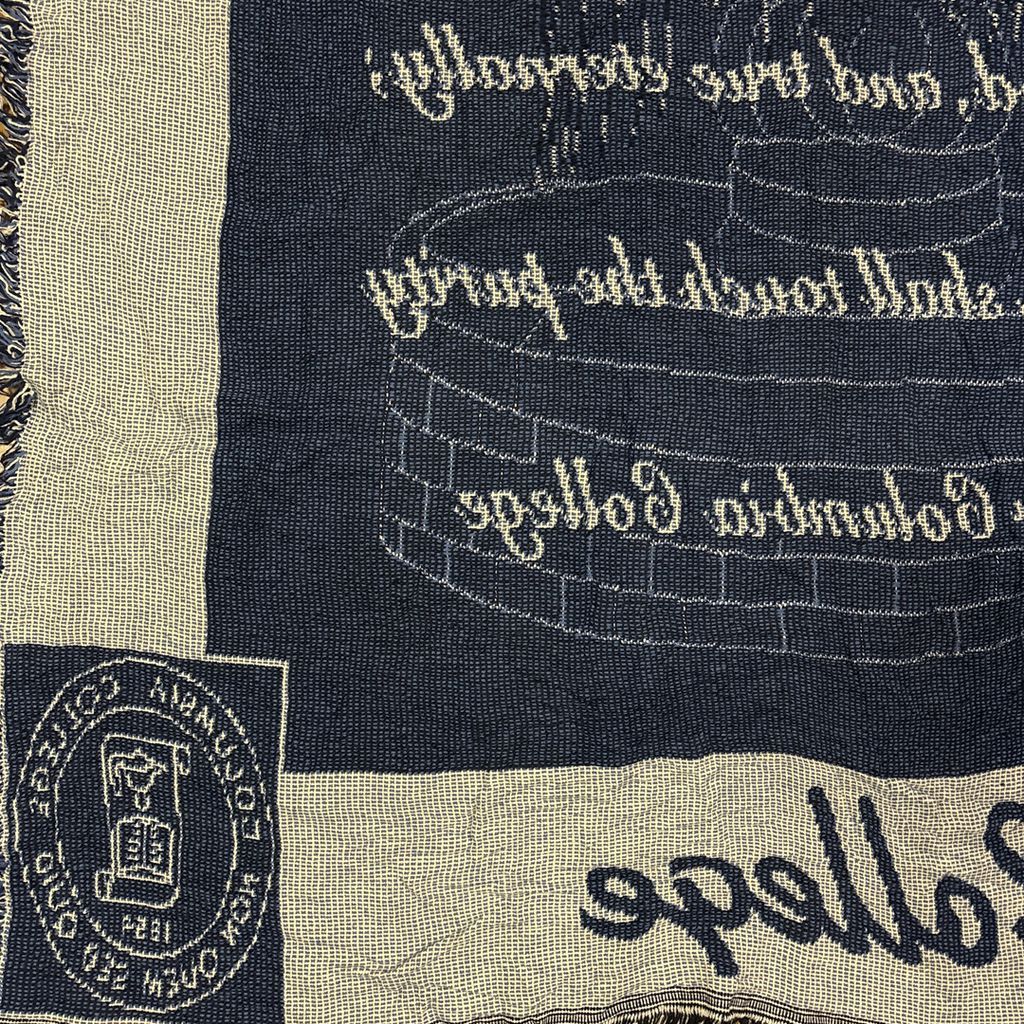 d, and true eternally;
shall touch the purity
Columbia College
COLUMBIA COLLEGE
1854
NON QUEM SED
College